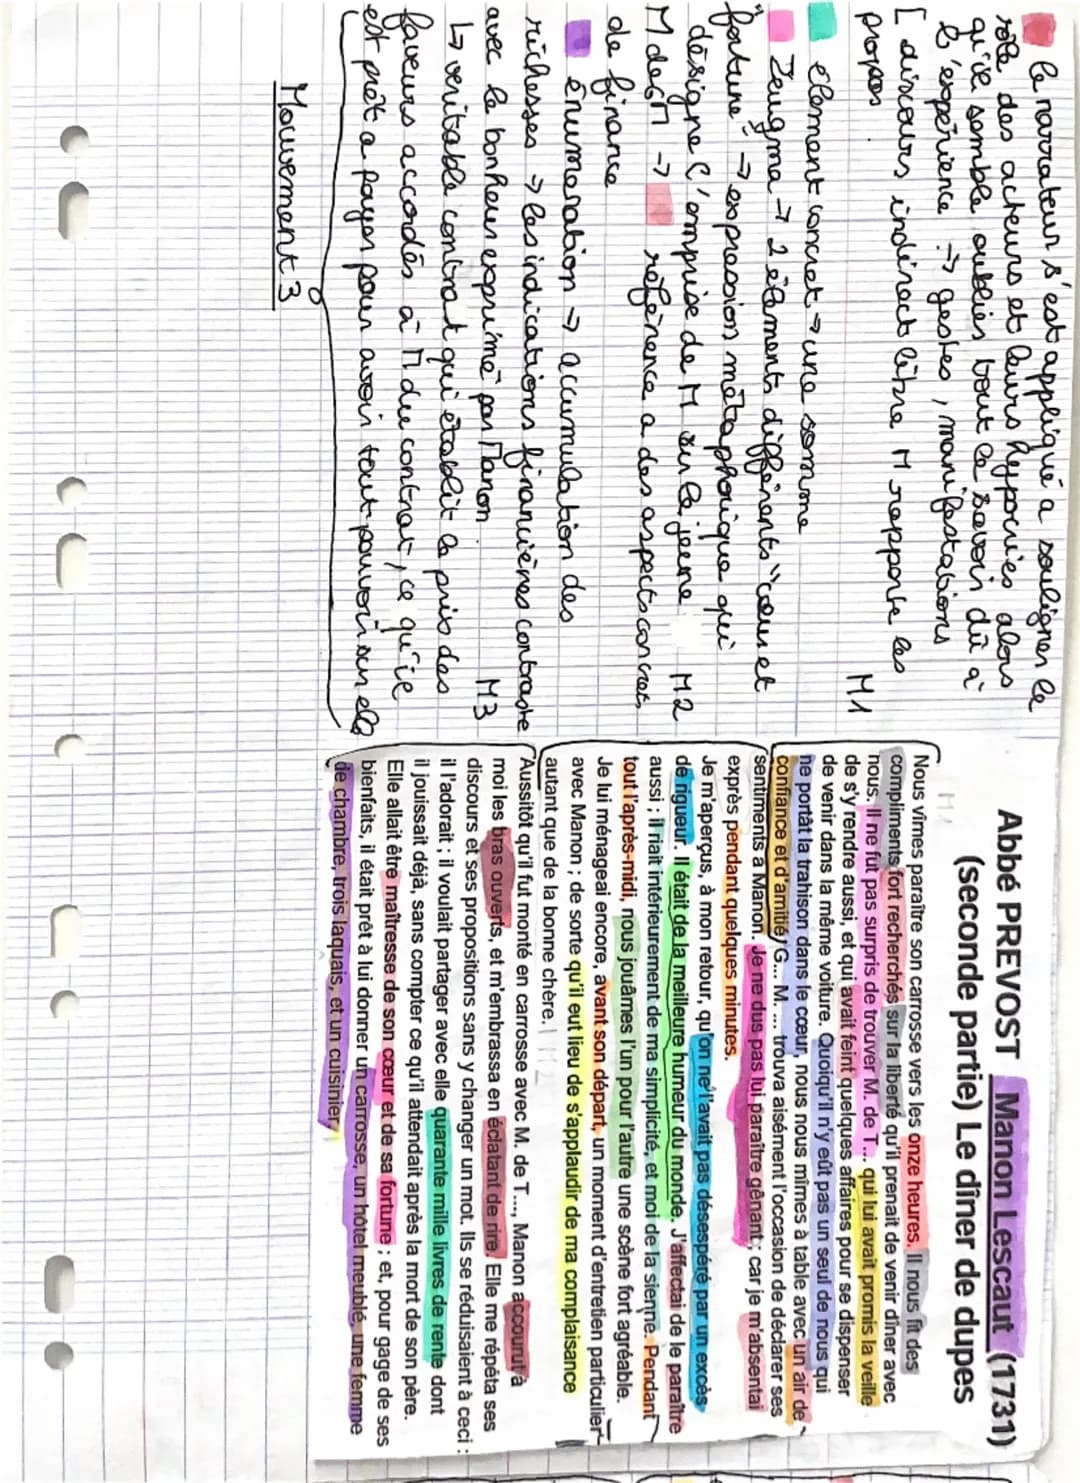 le narrateur s'est appliqué a souligner le
rôle des acteurs et leurs hypocries alors
qu'ile semble oublies tout le savoir dû à
l'expérience → gestes, manifestations
[ discours indérect libre M rapporte les
propos.
M1
élement concret → une somme
Zeugma → 2 élements différents "cœur et
fortune" → expression métaphorique qui
désigne l'emprise de M sur le jeune
M2
M de GM → référence a des aspects concrets
de finance
énumeration → accumulation des
richesses → les indications financières contraste
avec le bonheur exprimé par Manon.
M3
↳ veritable contrat qui établit le prix des
faveurs accordés à M du contrat, ce qu'ile
est prêt a payer pour avoir tout pouvoir sur elle
Mouvement 3
Abbé PREVOST Manon Lescaut (1731)
(seconde partie) Le dîner de dupes
M1
Nous vîmes paraître son carrosse vers les onze heures. Il nous fit des
compliments fort recherchés sur la liberté qu'il prenait de venir dîner avec
nous. Il ne fut pas surpris de trouver M. de T... qui lui avait promis la veille
de s'y rendre aussi, et qui avait feint quelques affaires pour se dispenser
de venir dans la même voiture. Quoiqu'il n'y eût pas un seul de nous qui
ne portât la trahison dans le cœur, nous nous mîmes à table avec un air de
confiance et d'amitié/ G... M. ... trouva aisément l'occasion de déclarer ses
sentiments à Manon. Je ne dus pas lui paraître gênant ; car je m'absentai
exprès pendant quelques minutes.
Je m'aperçus, à mon retour, qu'on ne l'avait pas désespéré par un excès
de rigueur. Il était de la meilleure humeur du monde. J'affectai de le paraître
aussi ; il riait intérieurement de ma simplicité, et moi de la sienne. Pendant
tout l'après-midi, nous jouâmes l'un pour l'autre une scène fort agréable.
Je lui ménageai encore, avant son départ, un moment d'entretien particulier
avec Manon ; de sorte qu'il eut lieu de s'applaudir de ma complaisance
autant que de la bonne chère.
Aussitôt qu'il fut monté en carrosse avec M. de T..., Manon accourut à
moi les bras ouverts, et m'embrassa en éclatant de rire. Elle me répéta ses
discours et ses propositions sans y changer un mot. Ils se réduisaient à ceci :
il l'adorait ; il voulait partager avec elle quarante mille livres de rente dont
il jouissait déjà, sans compter ce qu'il attendait après la mort de son père.
Elle allait être maîtresse de son cœur et de sa fortune ; et, pour gage de ses
bienfaits, il était prêt à lui donner un carrosse, un hôtel meublé, une femme
de chambre, trois laquais, et un cuisinier.